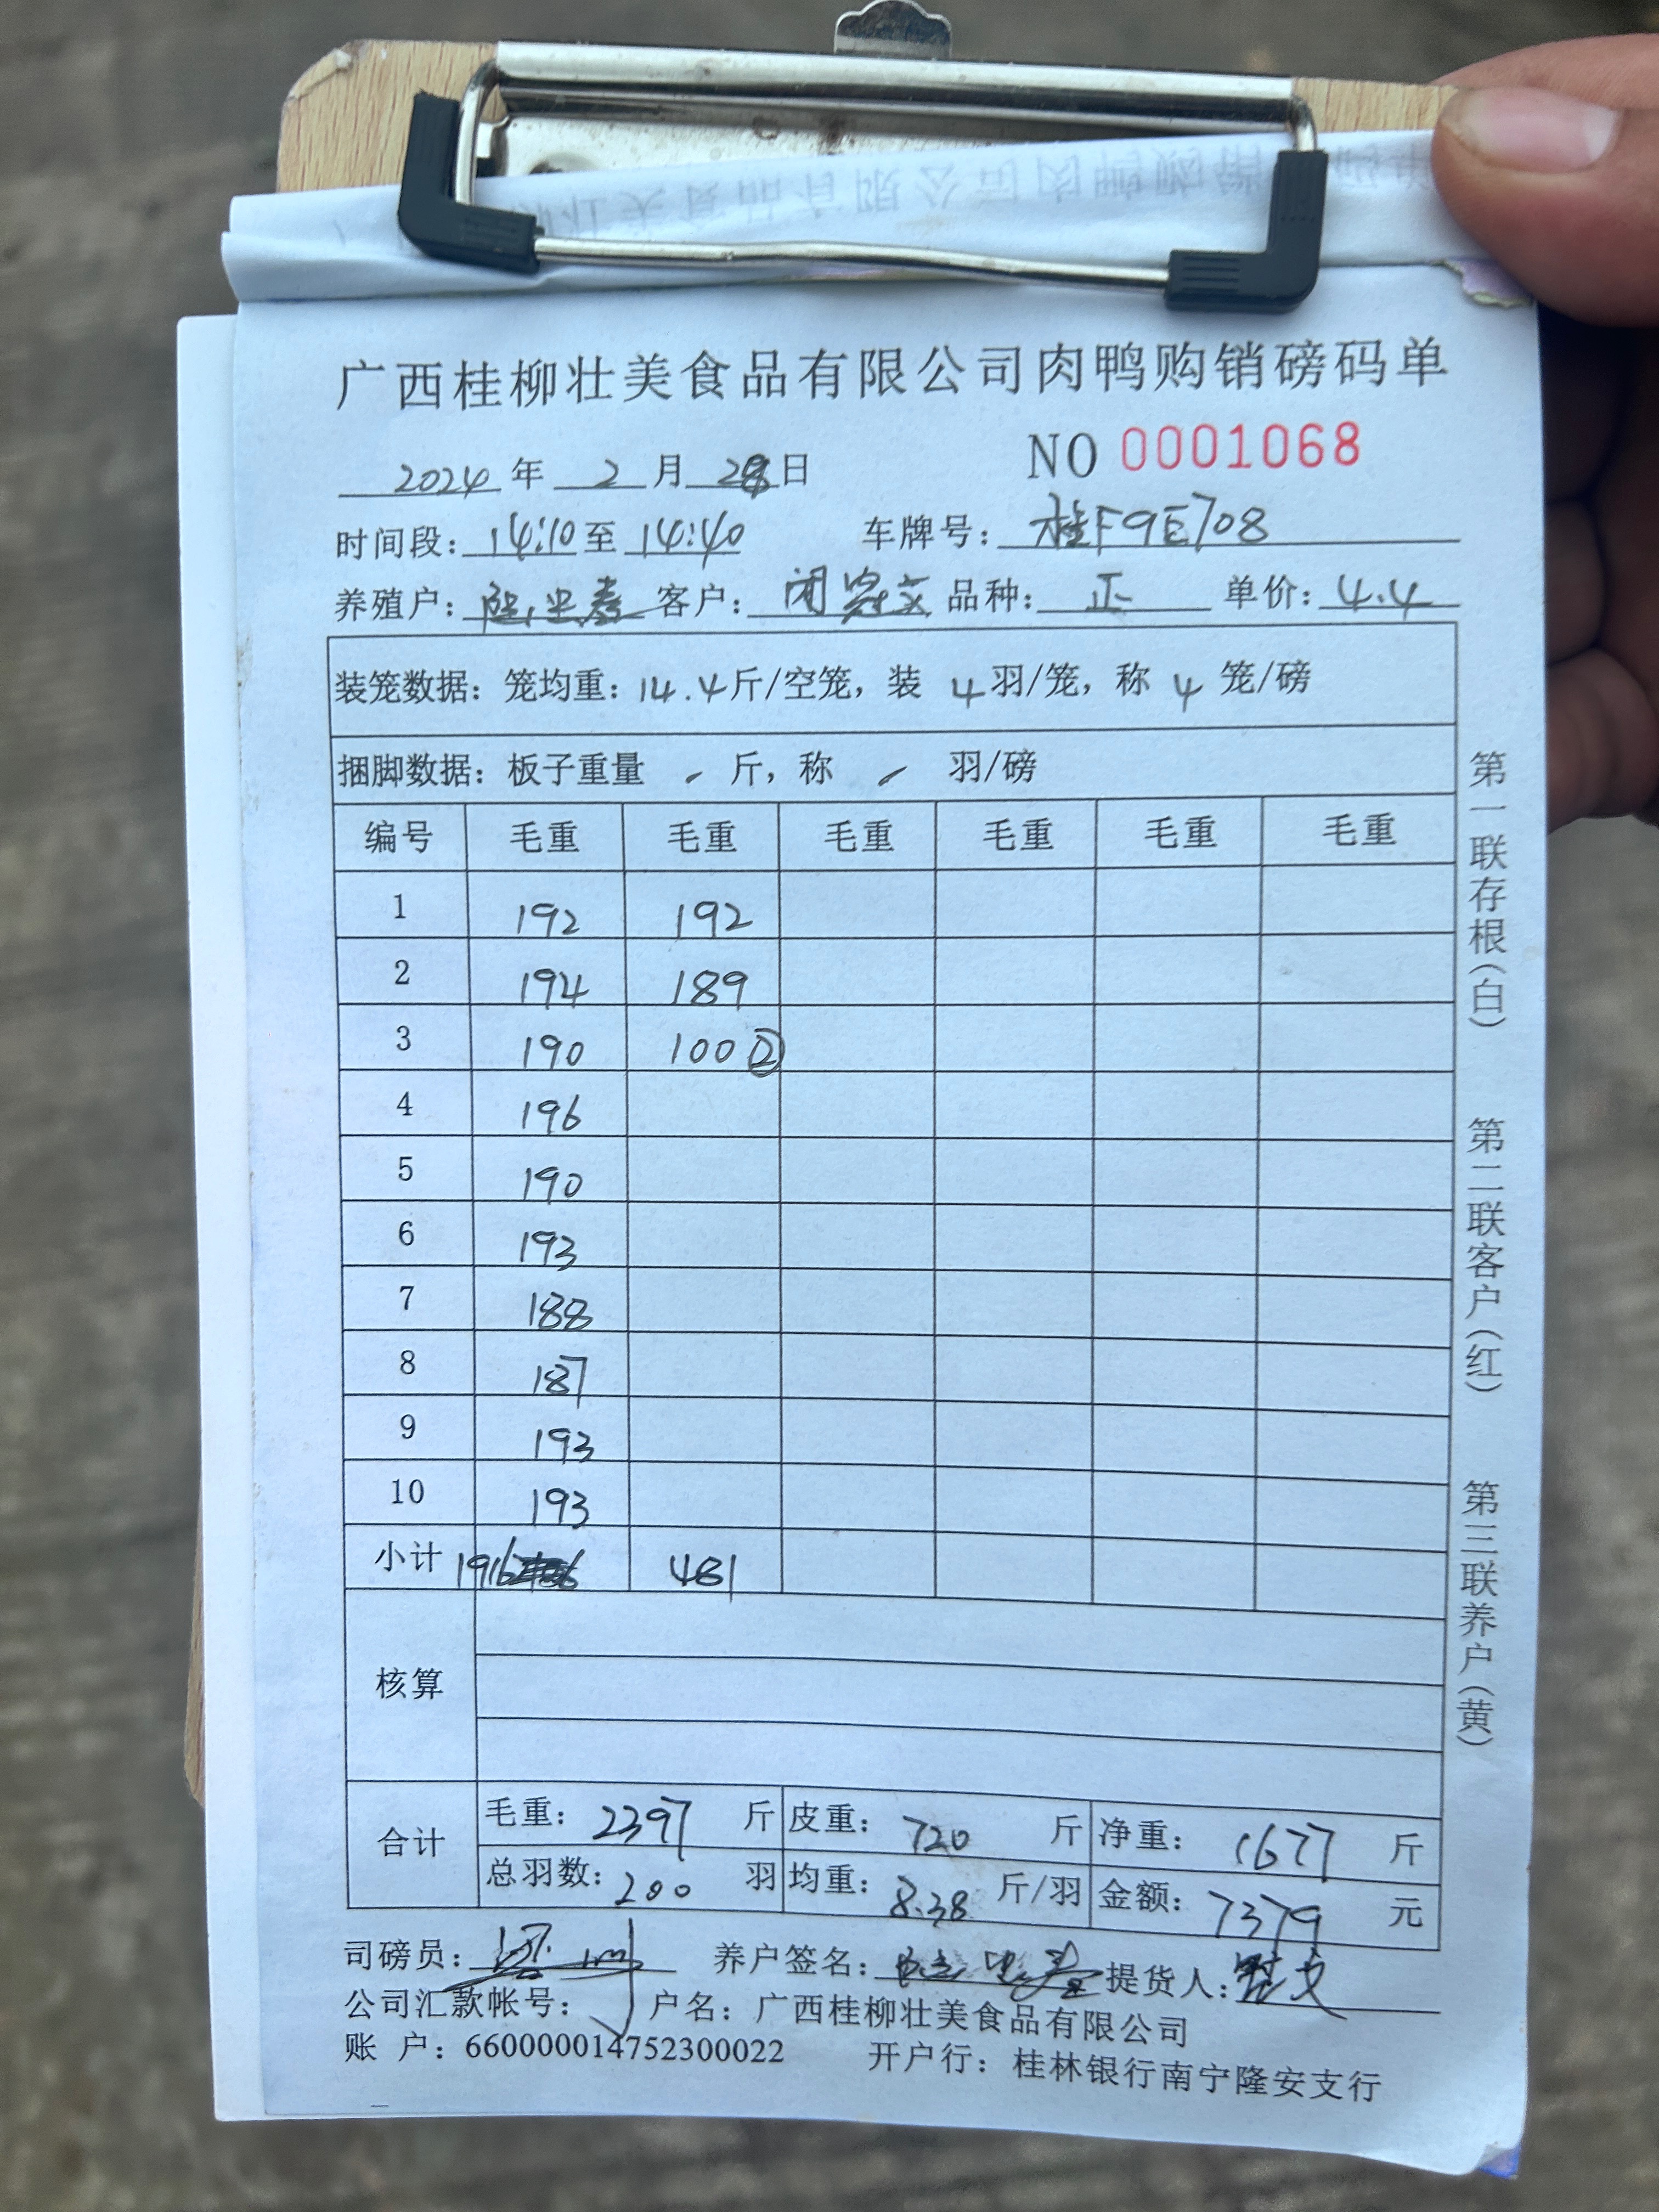 广西桂柳壮美食品有限公司肉鸭购销磅码单
NO 0001068
2024 年 2 月 28 日
时间段: 14:10 至 14:40 车牌号: 桂F9E708
养殖户: 客户: 闭 文 品种: 正 单价: 4.4
装笼数据: 笼均重: 14.4 斤/空笼, 装 4 羽/笼, 称 4 笼/磅
捆脚数据: 板子重量 斤, 称 羽/磅
编号 毛重 毛重 毛重 毛重 毛重 毛重
1 192 192
2 194 189
3 190 100 ②
4 196
5 190
6 193
7 188
8 187
9 193
10 193
小计 1916 481
核算
合计 毛重: 2397 斤 皮重: 720 斤 净重: 1677 斤
总羽数: 200 羽 均重: 8.38 斤/羽 金额: 7379 元
司磅员: 养户签名: 提货人:
公司汇款帐号: 户名: 广西桂柳壮美食品有限公司
账 户: 660000014752300022 开户行: 桂林银行南宁隆安支行
第一联存根(白) 第二联客户(红) 第三联养户(黄)